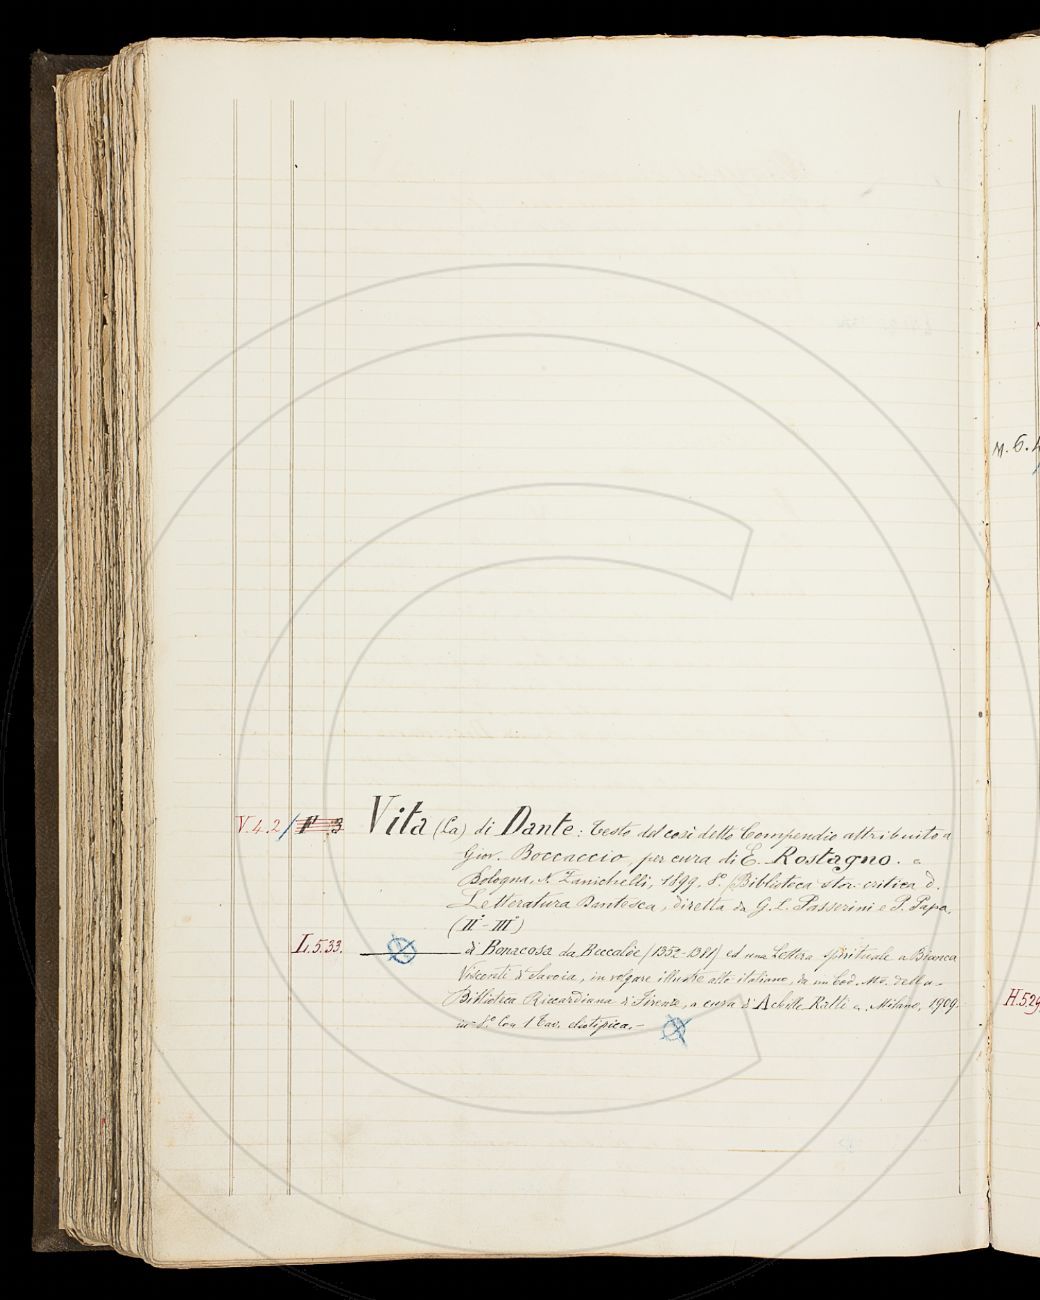 V.4.2/ 3 Vita (La) di Dante: Testo del così detto Compendio attribuito a
Giov. Boccaccio, per cura di E. Rostagno. -
Bologna, N. Zanichelli, 1899. 8.° (Biblioteca stor. critica d.
Letteratura Dantesca, diretta da G. L. Passerini e P. Papa,
(II°-III°)
L.5.33. di Bonacosa da Beccalóe (1352-1381) ed una Lettera spirituale a Bianca
Visconti di Savoia, in volgare illustre alto italiano, da un Cod. Ms. della
Biblioteca Riccardiana di Firenze, a cura di Achille Ratti - Milano, 1909.
in-8.° Con 1 Tav. eliotipica.-
M. 6.
H.529